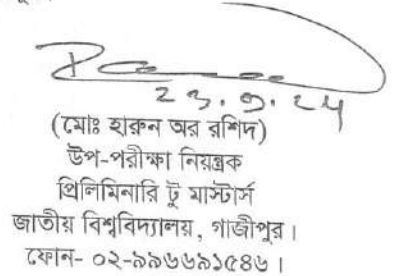 23.9.24
(মোঃ হারুন অর রশিদ)
উপ-পরীক্ষা নিয়ন্ত্রক
প্রিলিমিনারি টু মাস্টার্স
জাতীয় বিশ্ববিদ্যালয়, গাজীপুর।
ফোন- ০২-৯৯৬৬৯১৫৪৬।